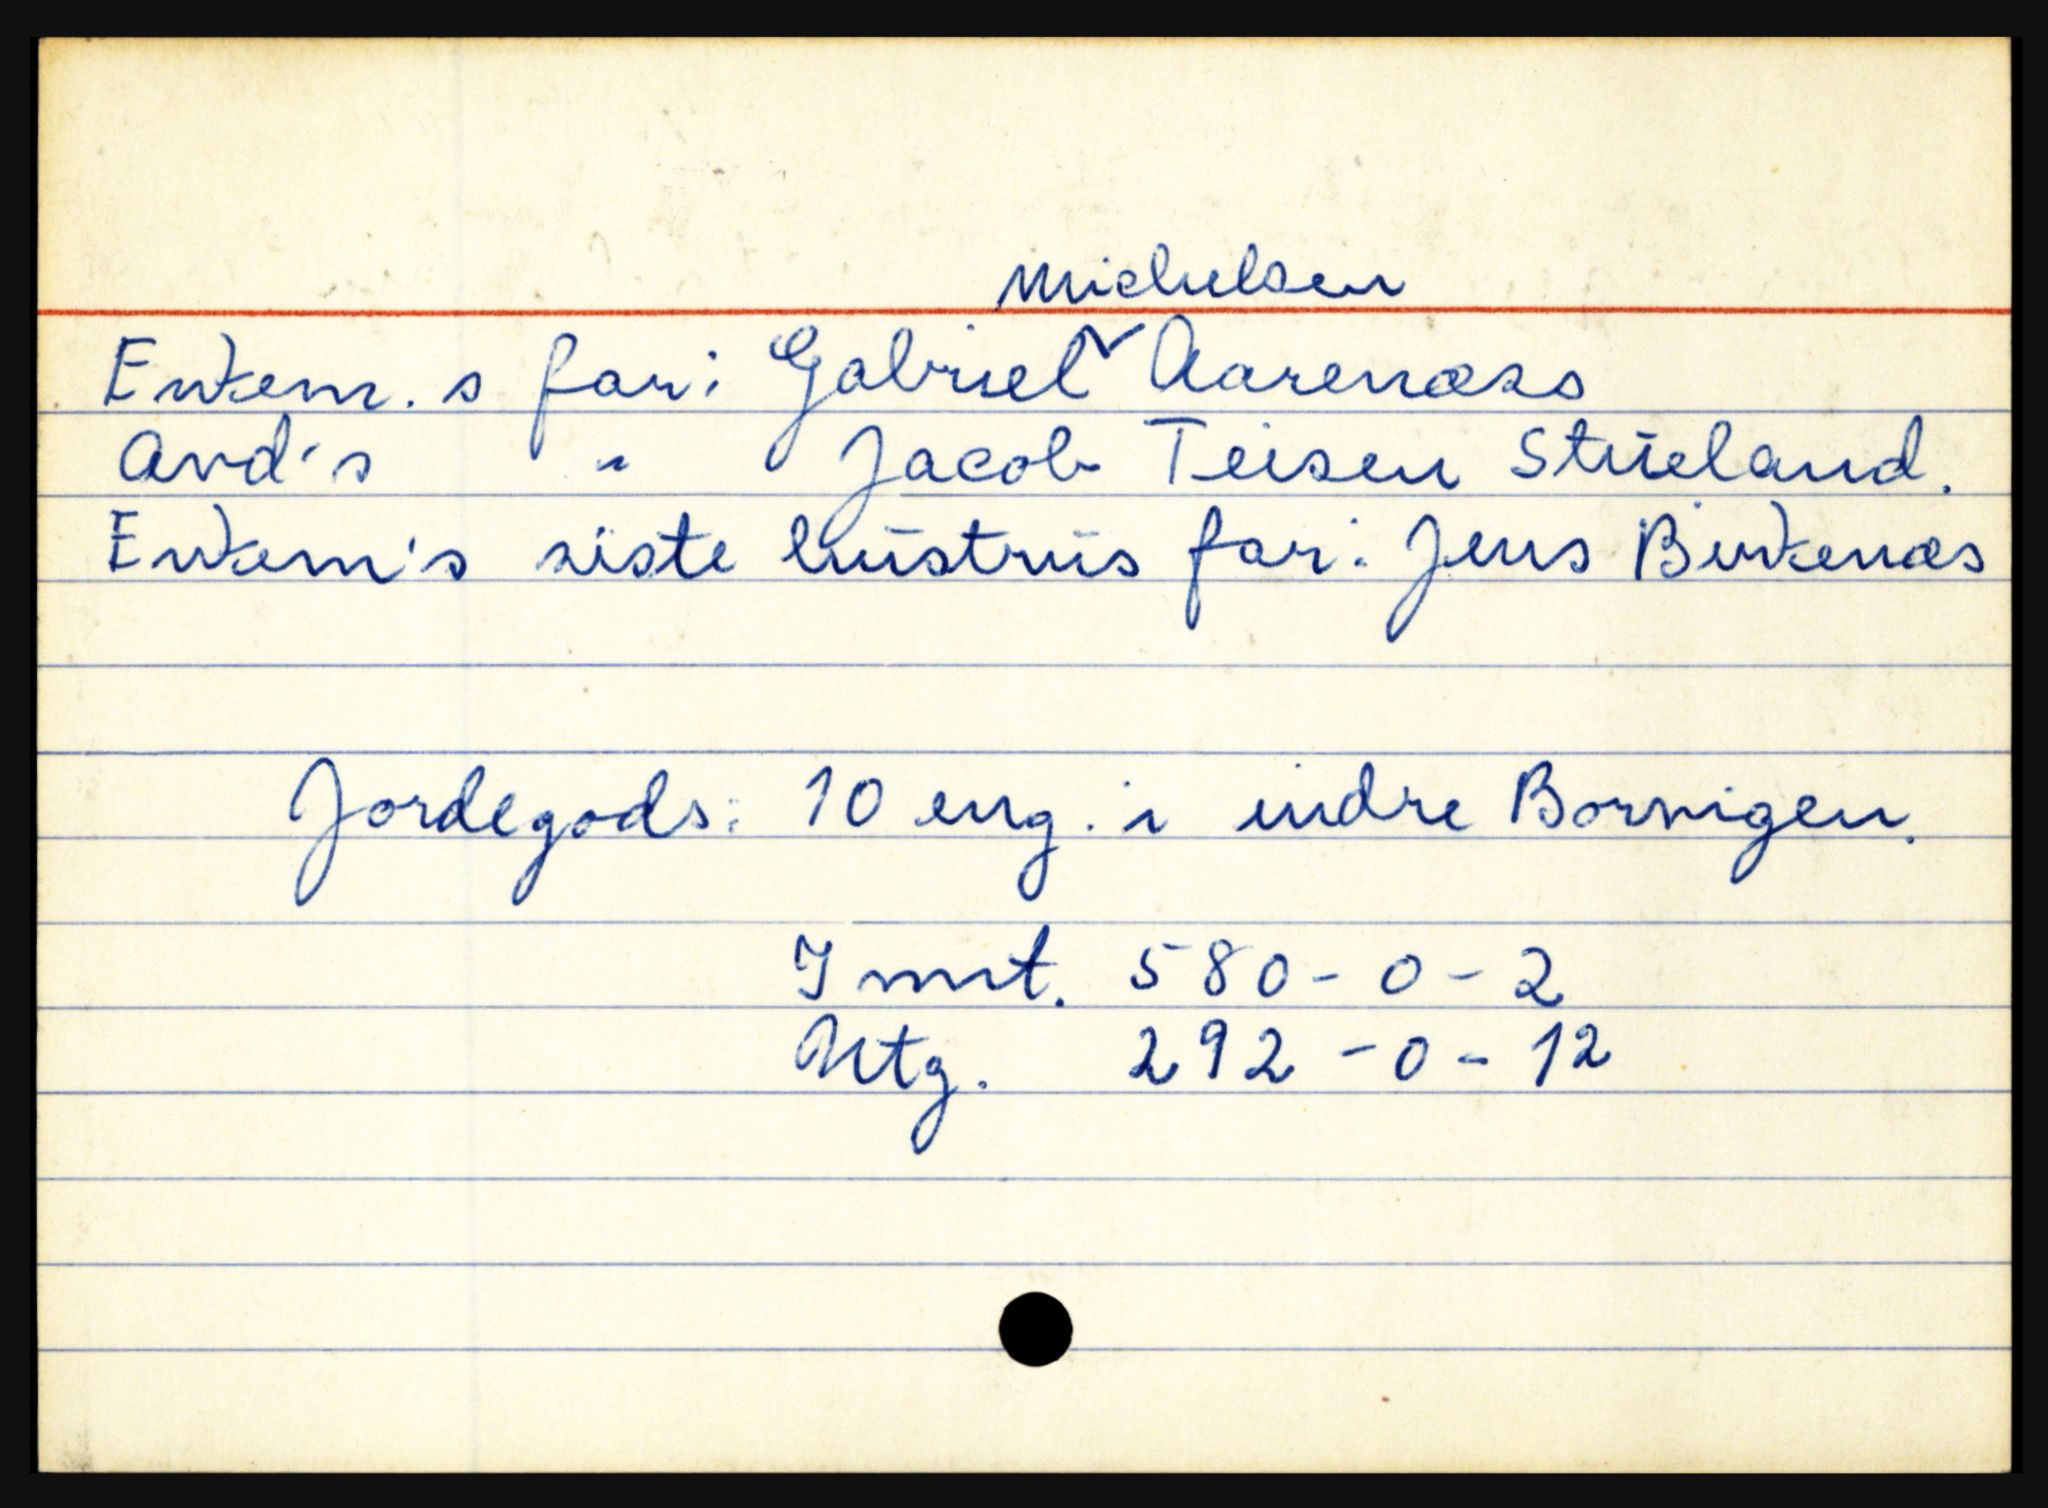 Michelsen
Enkem.s far: Gabriel ✓ Aarenæss
Avd's " Jacob Teisen Stueland.
Enkem's siste hustrus far: Jens Birkenæs
Jordegods: 10 eng. i indre Borvigen.
Innt. 580-0-2
Utg. 292-0-12